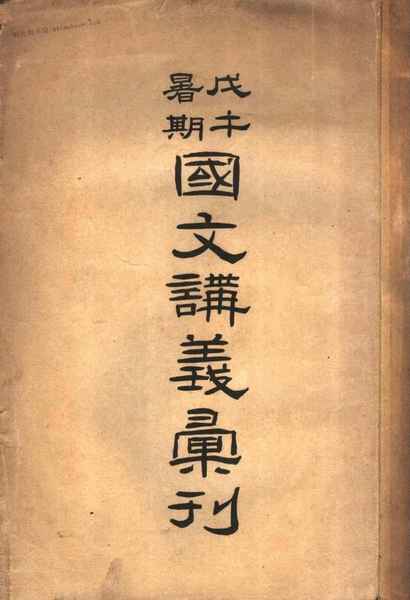 戊午
暑期
國文講義彙刊